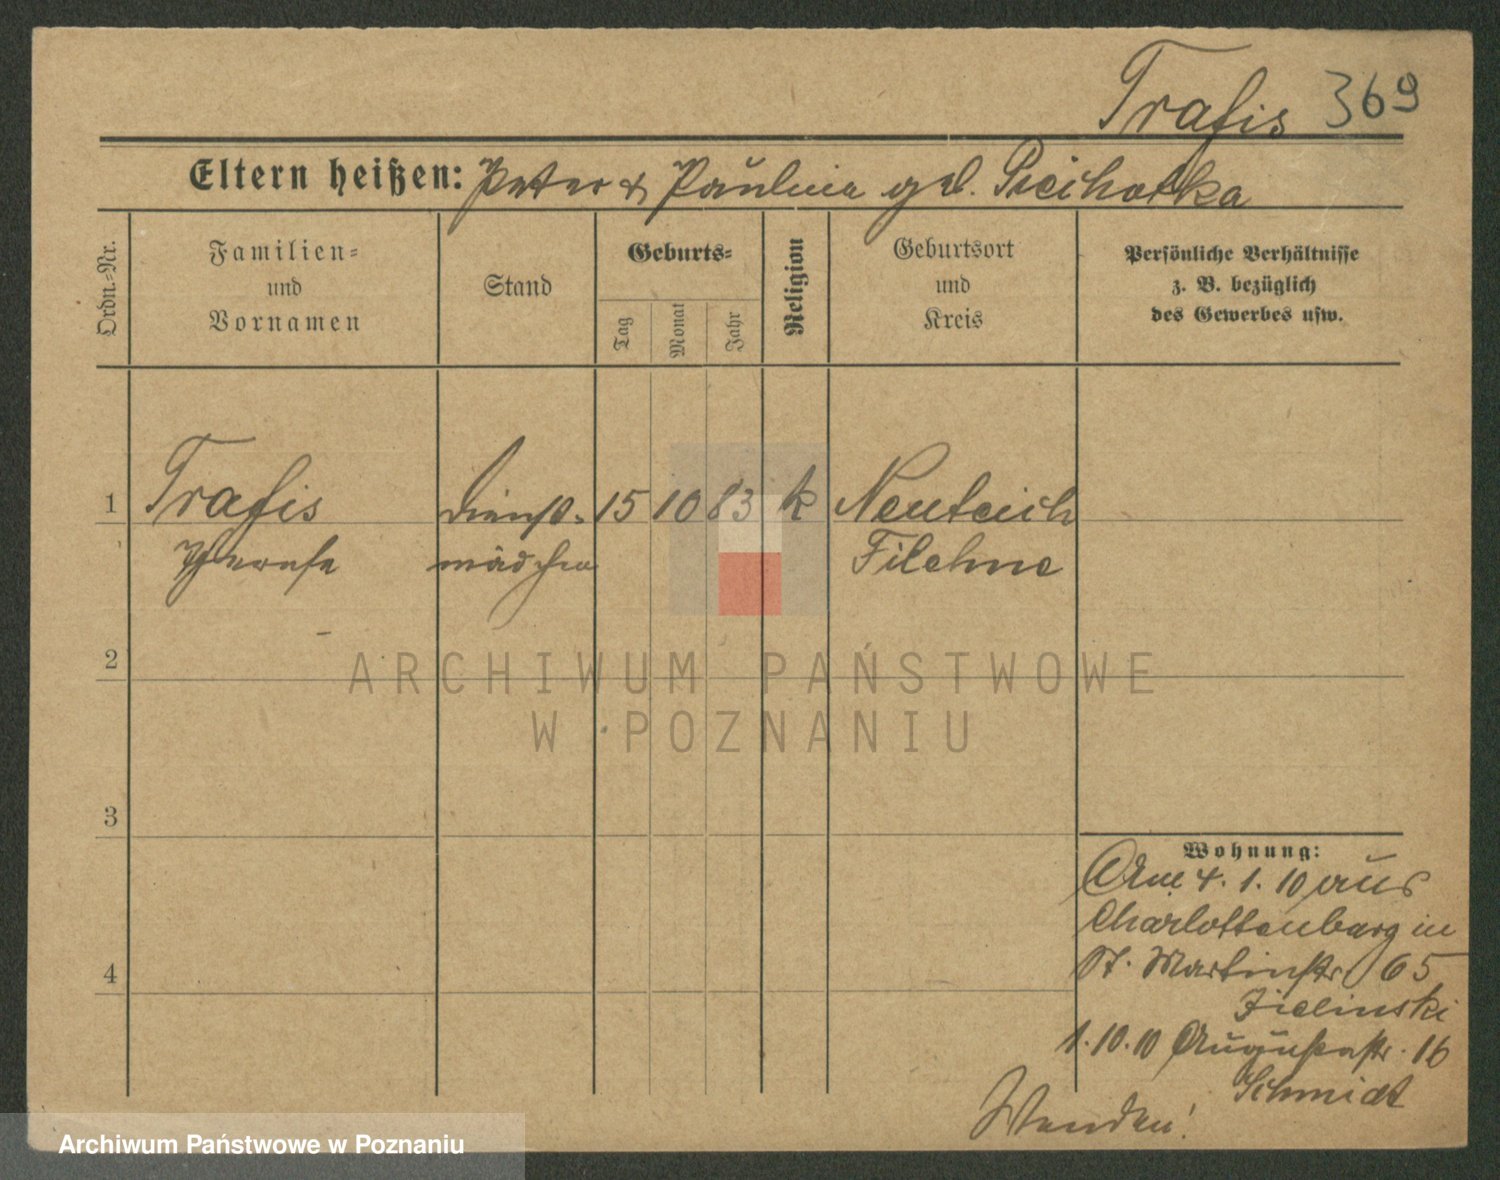 Trafis 369
Eltern heißen: Peter & Paulina geb. Piechotka
Ordn.-Nr.
Familien-
und
Vornamen
Stand
Geburts-
Tag
Monat
Jahr
Religion
Geburtsort
und
Kreis
Persönliche Verhältnisse
z. B. bezüglich
des Gewerbes usw.
1 Trafis Dienst- 15 10 83 k Neuteich
mädchen Filehne
2
ARCHIWUM PAŃSTWOWE
W POZNANIU
3
Wohnung:
Am 4. 1. 10 aus
Charlottenburg in
St. Martinstr. 65
Zielinski
1.10.10 Augustastr. 16
Schmidt
4
Wenden!
Archiwum Państwowe w Poznaniu